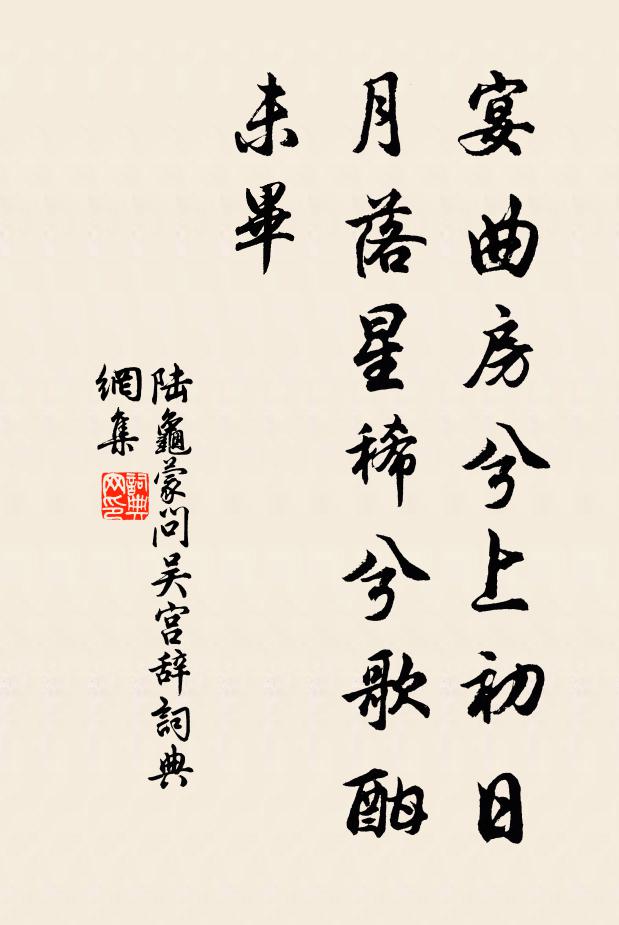 宴曲房兮上初日
月落星稀兮歌酣
未畢
陆龜蒙问吴宫辞詞典
網集
詞典
网印